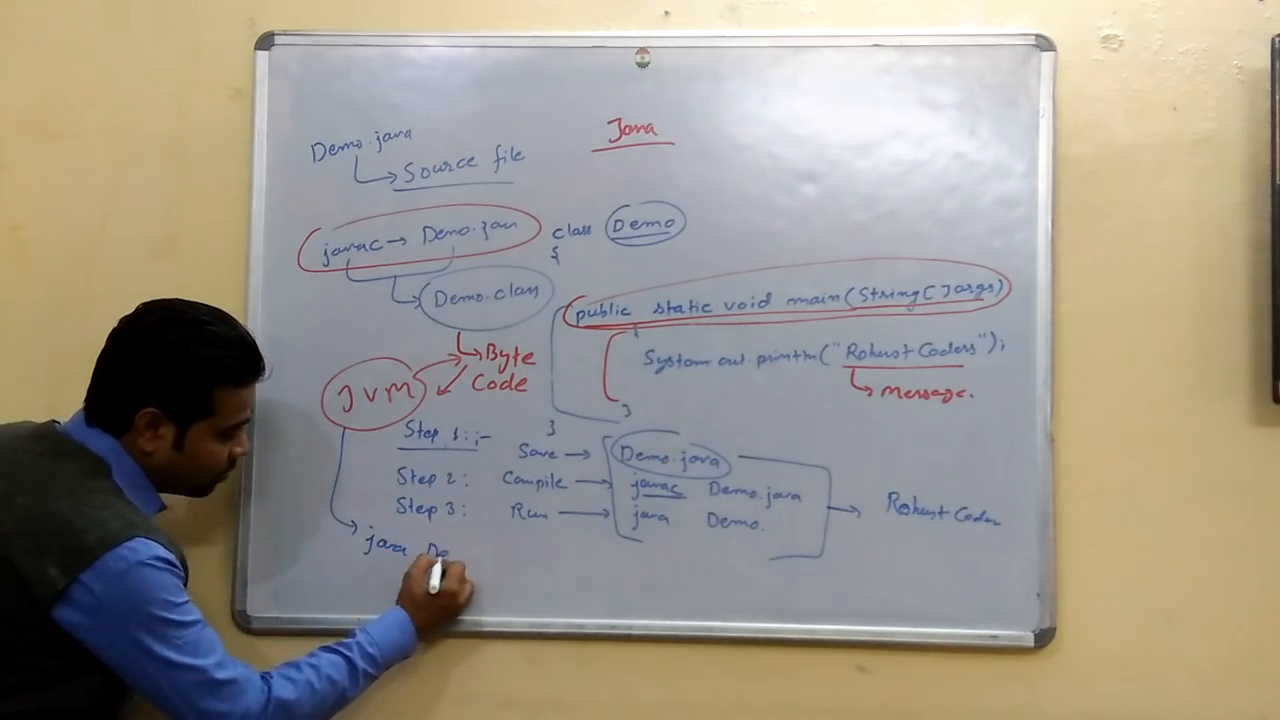 Java
Demo.java
Source file
javac → Demo.java
class Demo
{
Demo.class
public static void main(String[]args)
{
Byte
Code
System.out.println("Robust Coders");
message.
JVM
}
}
Step 1:;- Save → Demo.java
Step 2: Compile → javac Demo.java
Step 3: Run → java Demo.
Robust Coder
java De